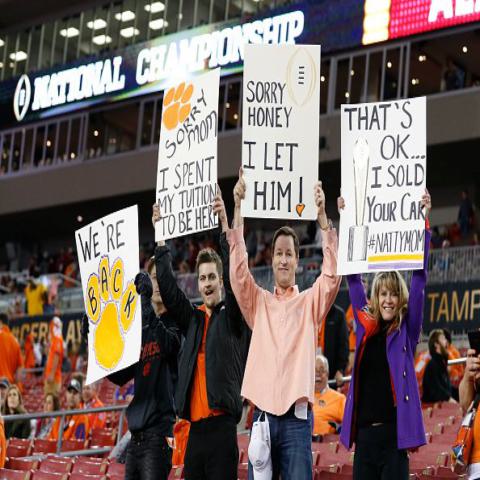 NATIONAL CHAMPIONSHIP
WE'RE
BACK
SORRY
MOM
I SPENT
MY TUITION
TO BE HERE
SORRY
HONEY
I LET
HIM!
THAT'S
OK...
I SOLD
YOUR CAR
#NATTYMOM
TAMP